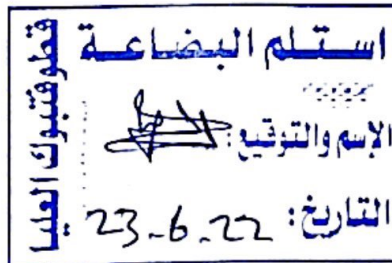 استلم البضاعة
الإسم والتوقيع:
التاريخ: 23-6-22
العليا